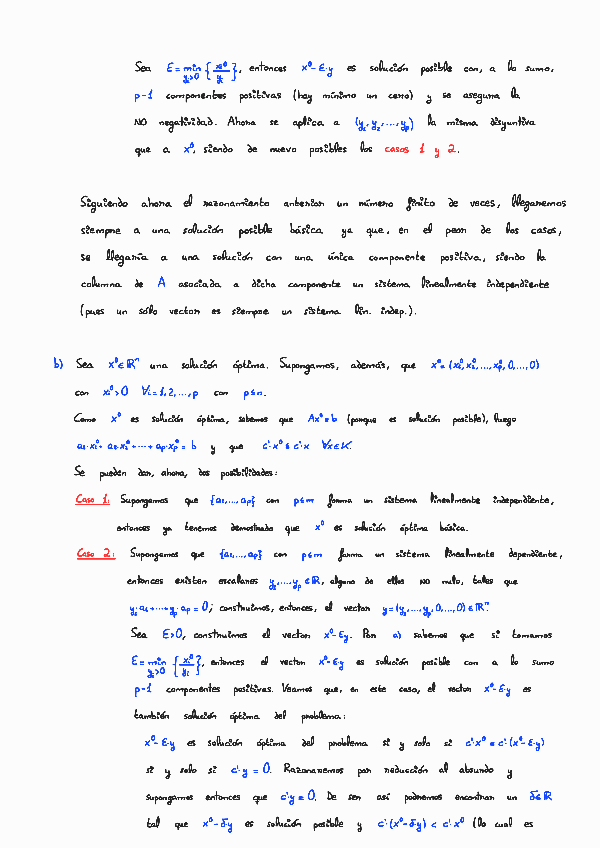 Sea ε = min_{y_i>0} { x_i⁰ / y_i }, entonces x⁰-ε·y es solución posible con, a lo sumo,
p-1 componentes positivas (hay mínimo un cero) y se asegura la
NO negatividad. Ahora se aplica a (y₁, y₂, ..., yₚ) la misma disyuntiva
que a x⁰, siendo de nuevo posibles los casos 1 y 2.
Siguiendo ahora el razonamiento anterior un número finito de veces, llegaremos
siempre a una solución posible básica ya que, en el peor de los casos,
se llegaría a una solución con una única componente positiva, siendo la
columna de A asociada a dicha componente un sistema linealmente independiente
(pues un sólo vector es siempre un sistema lin. indep.).
b) Sea x⁰∈ℝⁿ una solución óptima. Supongamos, además, que x⁰=(x₁⁰,x₂⁰,...,xₚ⁰,0,...,0)
con xᵢ⁰>0 ∀i=1,2,...,p con p≤n.
Como x⁰ es solución óptima, sabemos que Ax⁰=b (porque es solución posible), luego
a₁·x₁⁰+a₂·x₂⁰+···+aₚ·xₚ⁰=b y que c'·x⁰≤c'·x ∀x∈K.
Se pueden dar, ahora, dos posibilidades:
Caso 1: Supongamos que {a₁,...,aₚ} con p≤m forma un sistema linealmente independiente,
entonces ya tenemos demostrado que x⁰ es solución óptima básica.
Caso 2: Supongamos que {a₁,...,aₚ} con p≤m forma un sistema linealmente dependiente,
entonces existen escalares y₁,...,yₚ∈ℝ, alguno de ellos NO nulo, tales que
y₁·a₁+···+yₚ·aₚ=0; construimos, entonces, el vector y=(y₁,...,yₚ,0,...,0)∈ℝⁿ.
Sea ε>0, construimos el vector x⁰-εy. Por a) sabemos que si tomamos
ε = min_{y_i>0} { x_i⁰ / y_i }, entonces el vector x⁰-εy es solución posible con a lo sumo
p-1 componentes positivas. Veamos que, en este caso, el vector x⁰-ε·y es
también solución óptima del problema:
x⁰-ε·y es solución óptima del problema si y solo si c'·x⁰=c'·(x⁰-ε·y)
si y solo si c'·y=0. Razonaremos por reducción al absurdo y
supongamos entonces que c'·y≠0. De ser así podremos encontrar un δ∈ℝ
tal que x⁰-δy es solución posible y c'·(x⁰-δy)<c'·x⁰ (lo cual es